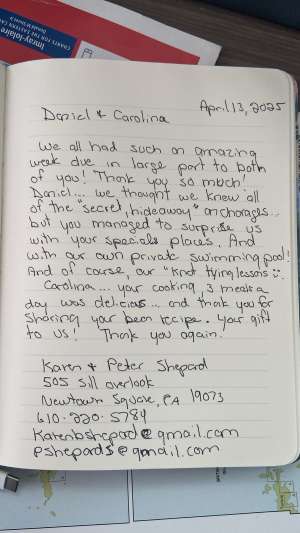 Imray-Iolaire
April 13, 2025
Daniel & Carolina
We all had such an amazing
week due in large part to both
of you! Thank you so much!
Daniel... we thought we knew all
of the "secret, hideaway" anchorages...
but you managed to surprise us
with your special places. And
with our own private swimming pool!
And of course, our "knot tying lessons
Carolina... your cooking, 3 meals a
day was delicias... and thank you for
sharing your bean recipe. Your gift
to us! Thank you again.
Karen & Peter Shepard
505 Sill overlook
Newtown Square, PA 19073
610-220-5784
Karenbshepard@gmail.com
pshepard5@gmail.com